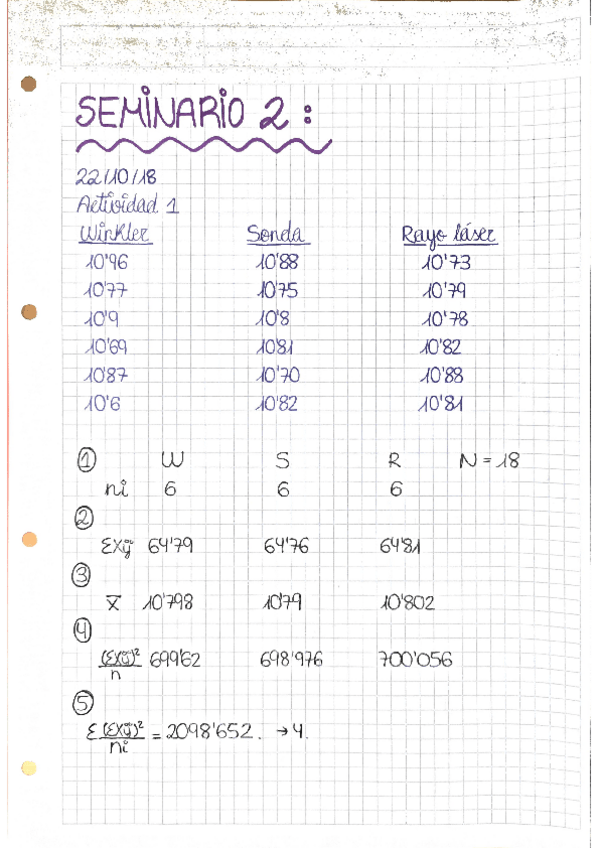 SEMINARIO 2:
22/10/18
Actividad 1
Winkler Sonda Rayo láser
10'96 10'88 10'73
10'77 10'75 10'79
10'9 10'8 10'78
10'69 10'81 10'82
10'87 10'70 10'88
10'6 10'82 10'81
① W S R N = 18
ni 6 6 6
②
ΣXij 64'79 64'76 64'81
③
X̄ 10'798 10'79 10'802
④
(ΣXij)²/n 699'62 698'976 700'056
⑤
Σ (ΣXij)²/ni = 2098'652. → 4.